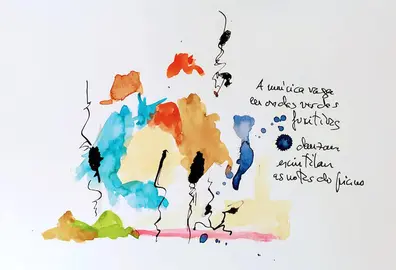 A música vaga
en ondas verdes
furtivas
danzan
escintilan
as notas do piano